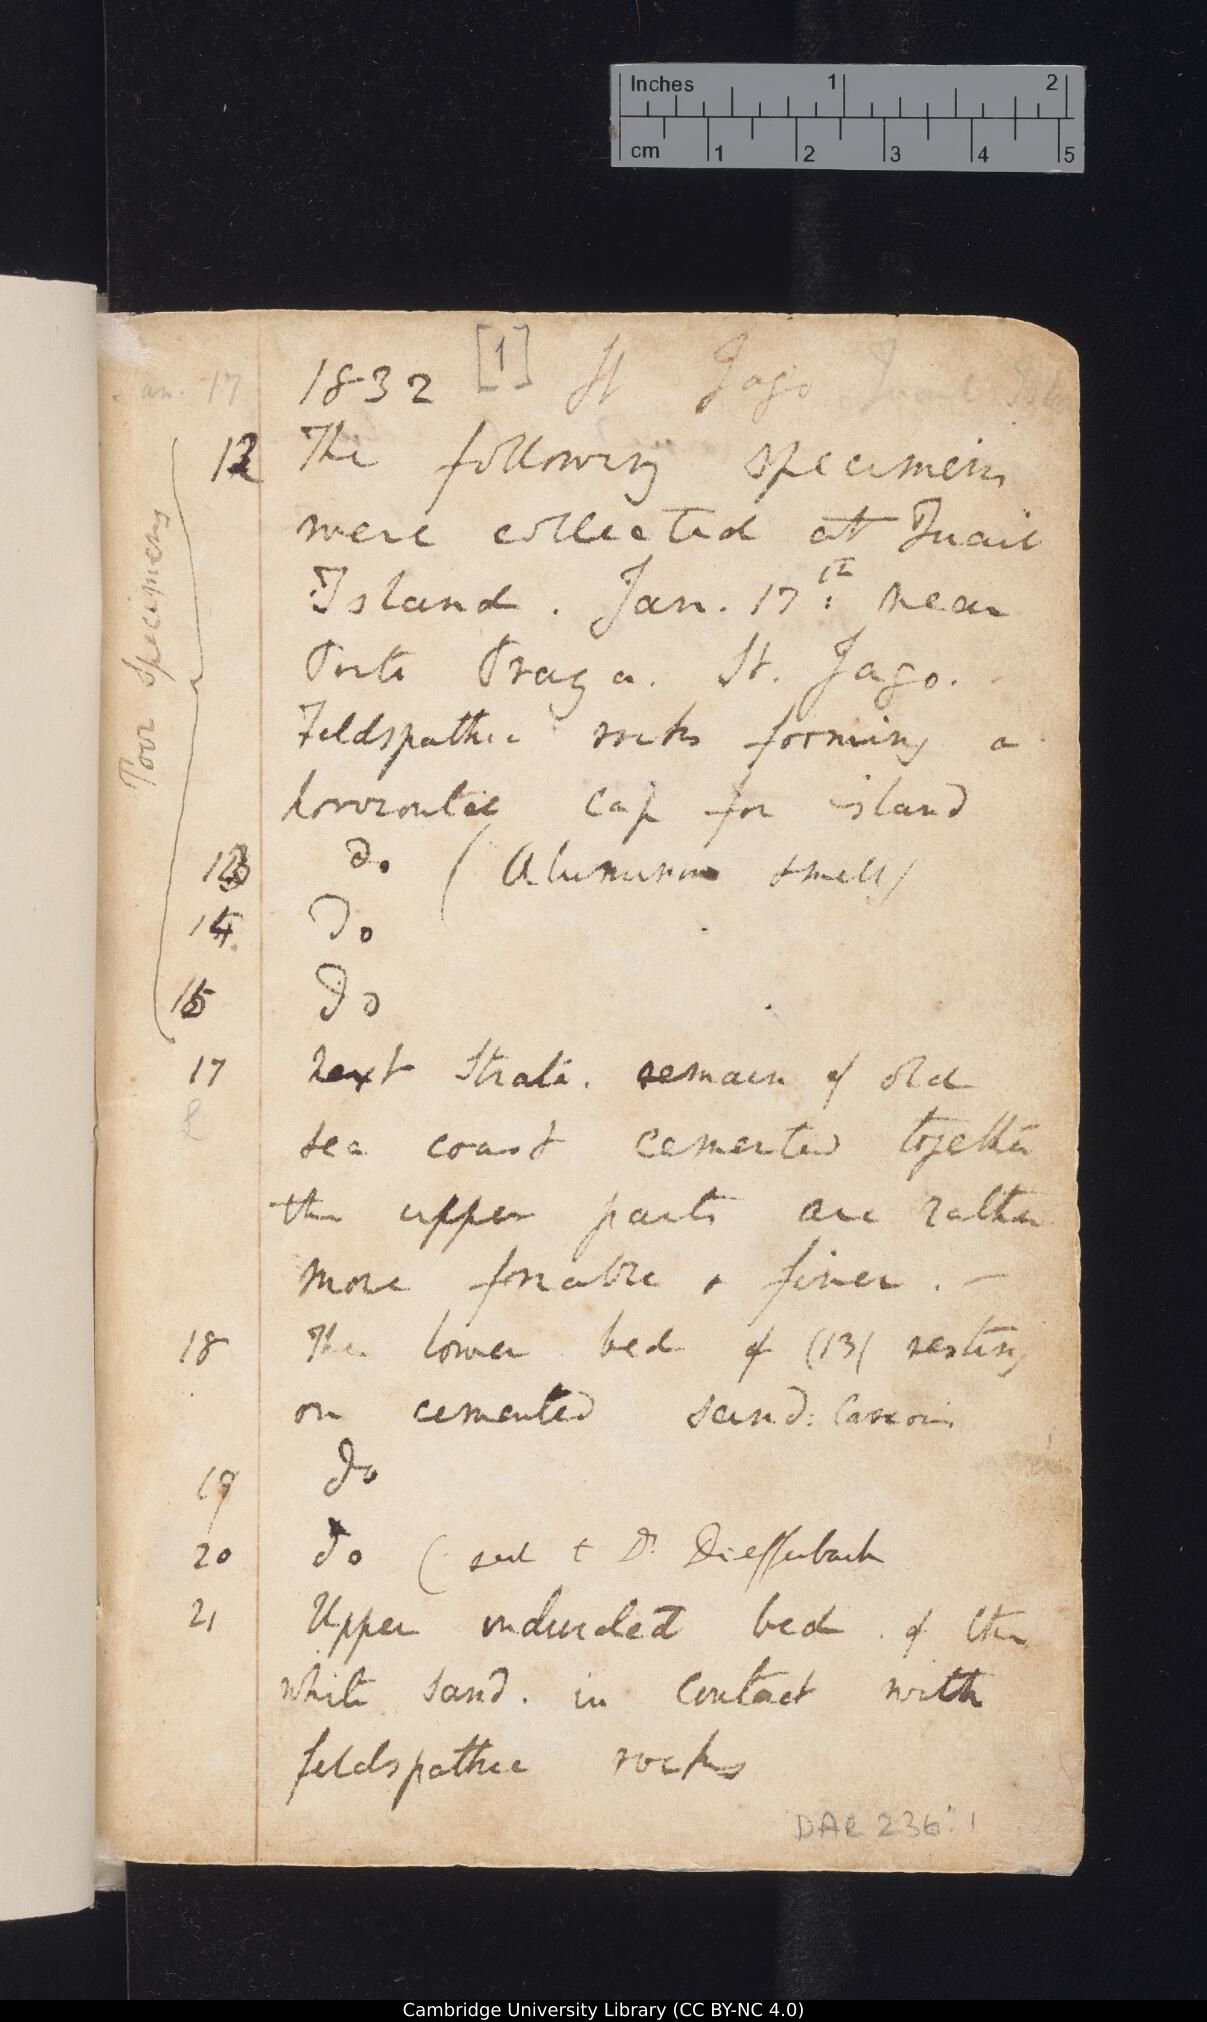 Inches 1 2
cm 1 2 3 4 5
[1]
an. 17 1832 St Jago Quail Isl
Poor Specimens
12 The following specimens
were collected at Quail
Island. Jan. 17th: near
Porto Praya. St. Jago.
Feldspathic rocks forming a
horizontal cap for island
13 do (Aluminous smell)
14 Do
15 Do
17 Next Strata. remain of old
sea coast cemented together
the upper parts are rather
more friable & finer. —
18 The lower bed of (13( resting
on cemented sand:
19 Do
20 Do ( sent t Dr Dieffenbach
21 Upper indurated bed of the
white sand. in contact with
feldspathic rocks
DAR 236:1
Cambridge University Library (CC BY-NC 4.0)